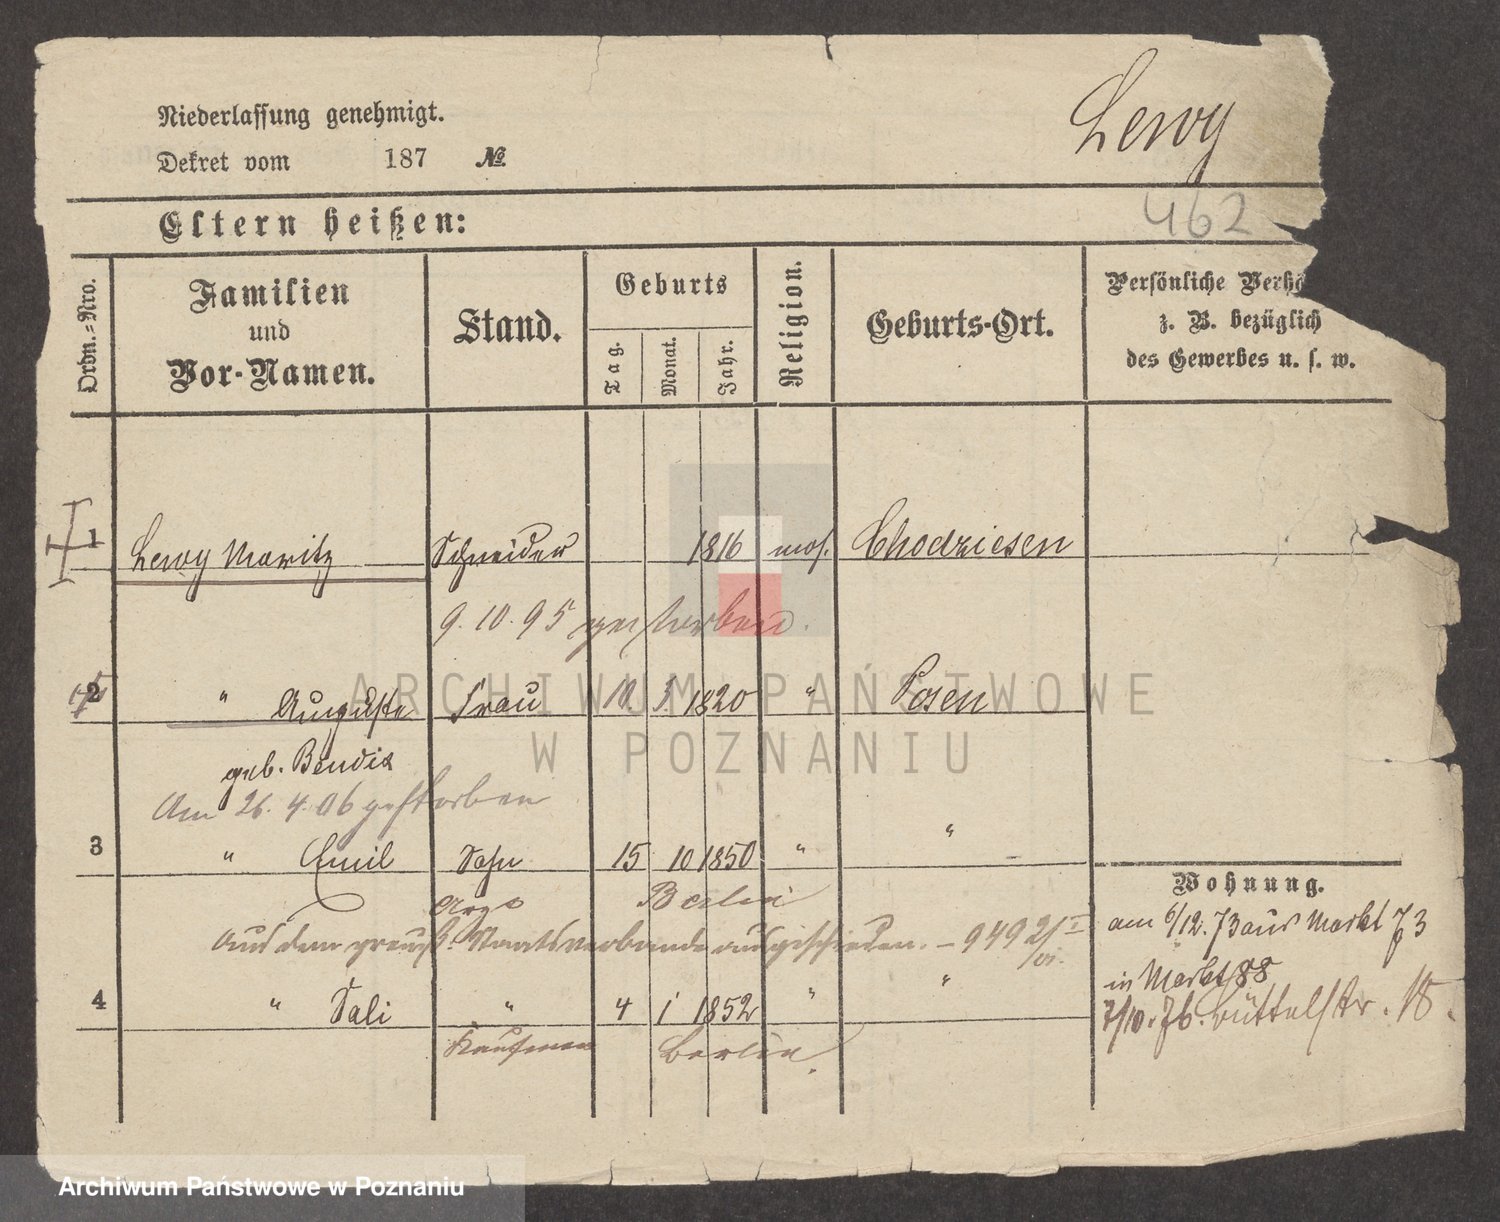 Niederlassung genehmigt.
Dekret vom 187 №
Lewy
462
Eltern heißen:
Ordn.=Nro.
Familien und Vor-Namen.
Stand.
Geburts
Tag.
Monat.
Jahr.
Religion.
Geburts-Ort.
Persönliche
z. B. bezüglich
des Gewerbes u. s. w.
1 Lewy Moritz Schneider 1816 mos. Chodziesen
9. 10. 95 gestorben.
2 " Auguste Frau 10. 3. 1820 " Posen
geb. Bendix
Am 26. 4. 06 gestorben
3 " Emil Sohn 15 10 1850 " "
Arzt Berlin
Aus dem preuß. Staatsverbande ausgeschieden. – 949
4 " Sali " 4 1 1852 " "
Kaufmann Berlin.
Wohnung.
am 6/12. 73 aus Markt 73
in Markt 88
7/10. 76. Büttelstr. 18.
ARCHIWUM PAŃSTWOWE
W POZNANIU
Archiwum Państwowe w Poznaniu